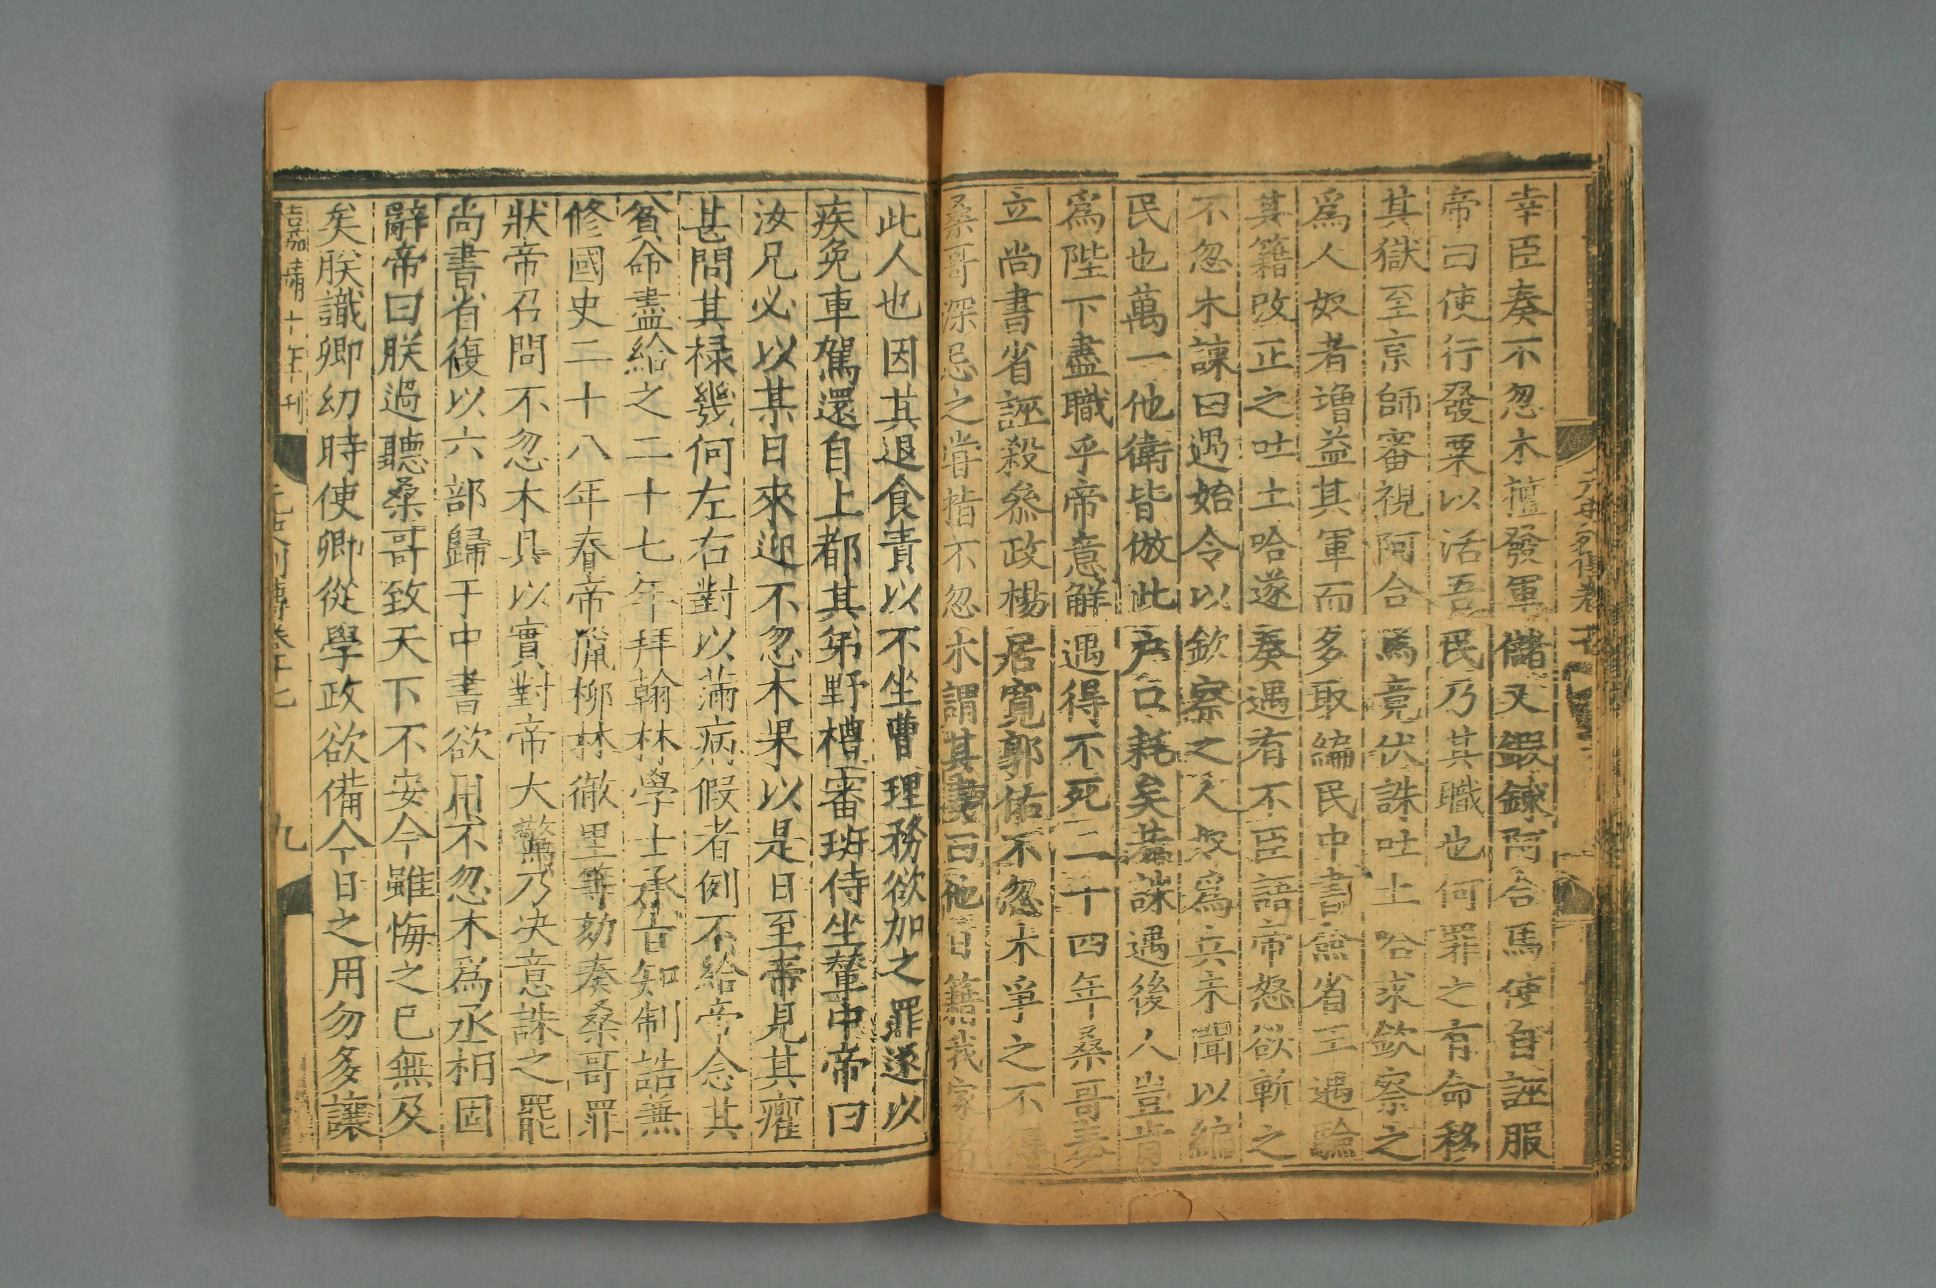 幸臣奏不忽木擅發軍儲又鍜鍊阿合馬使自誣服
帝曰使行發粟以活吾民乃其職也何罪之有命移
其獄至京師審視阿合馬竟伏誅吐土哈求欽察之
爲人奴者增益其軍而多取編民中書僉省王遇驗
其籍改正之吐土哈遂奏遇有不臣語帝怒欲斬之
不忽木諫曰遇始令以欽察之人奴爲兵未聞以編
民也萬一他衛皆倣此戶口耗矣若誅遇後人豈肯
爲陛下盡職乎帝意解遇得不死二十四年桑哥奏
立尚書省誣殺叅政楊居寬郭佑不忽木爭之不得
桑哥深忌之嘗指不忽木謂其妻曰他日籍我家者
此人也因其退食責以不坐曹理務欲加之罪遂以
疾免車駕還自上都其弟野禮審班侍坐輦中帝曰
汝兄必以某日來迎不忽木果以是日至帝見其癯
甚問其祿幾何左右對以滿病假者例不給帝念其
貧命盡給之二十七年拜翰林學士承旨知制誥兼
修國史二十八年春帝獵柳林徹里等劾奏桑哥罪
狀帝召問不忽木具以實對帝大驚乃决意誅之罷
尚書省復以六部歸于中書欲用不忽木爲丞相固
辭帝曰朕過聽桑哥致天下不安今雖悔之已無及
矣朕識卿幼時使卿從學政欲備今日之用勿多讓
嘉靖十年刊
元史列傳卷十七
九